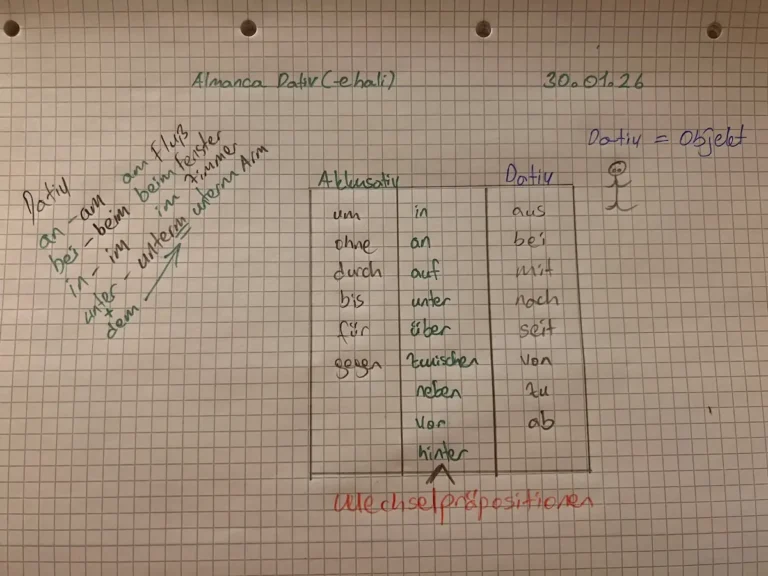 Almanca Dativ (-e hali) 30.01.26
Dativ = Objekt
Dativ
an - am am Fluß
bei - beim beim Fenster
in - im im Zimmer
unter - unterm unterm Arm
+
dem
Akkusativ Dativ
um in aus
ohne an bei
durch auf mit
bis unter nach
für über seit
gegen zwischen von
neben zu
vor ab
hinter
Wechselpräpositionen